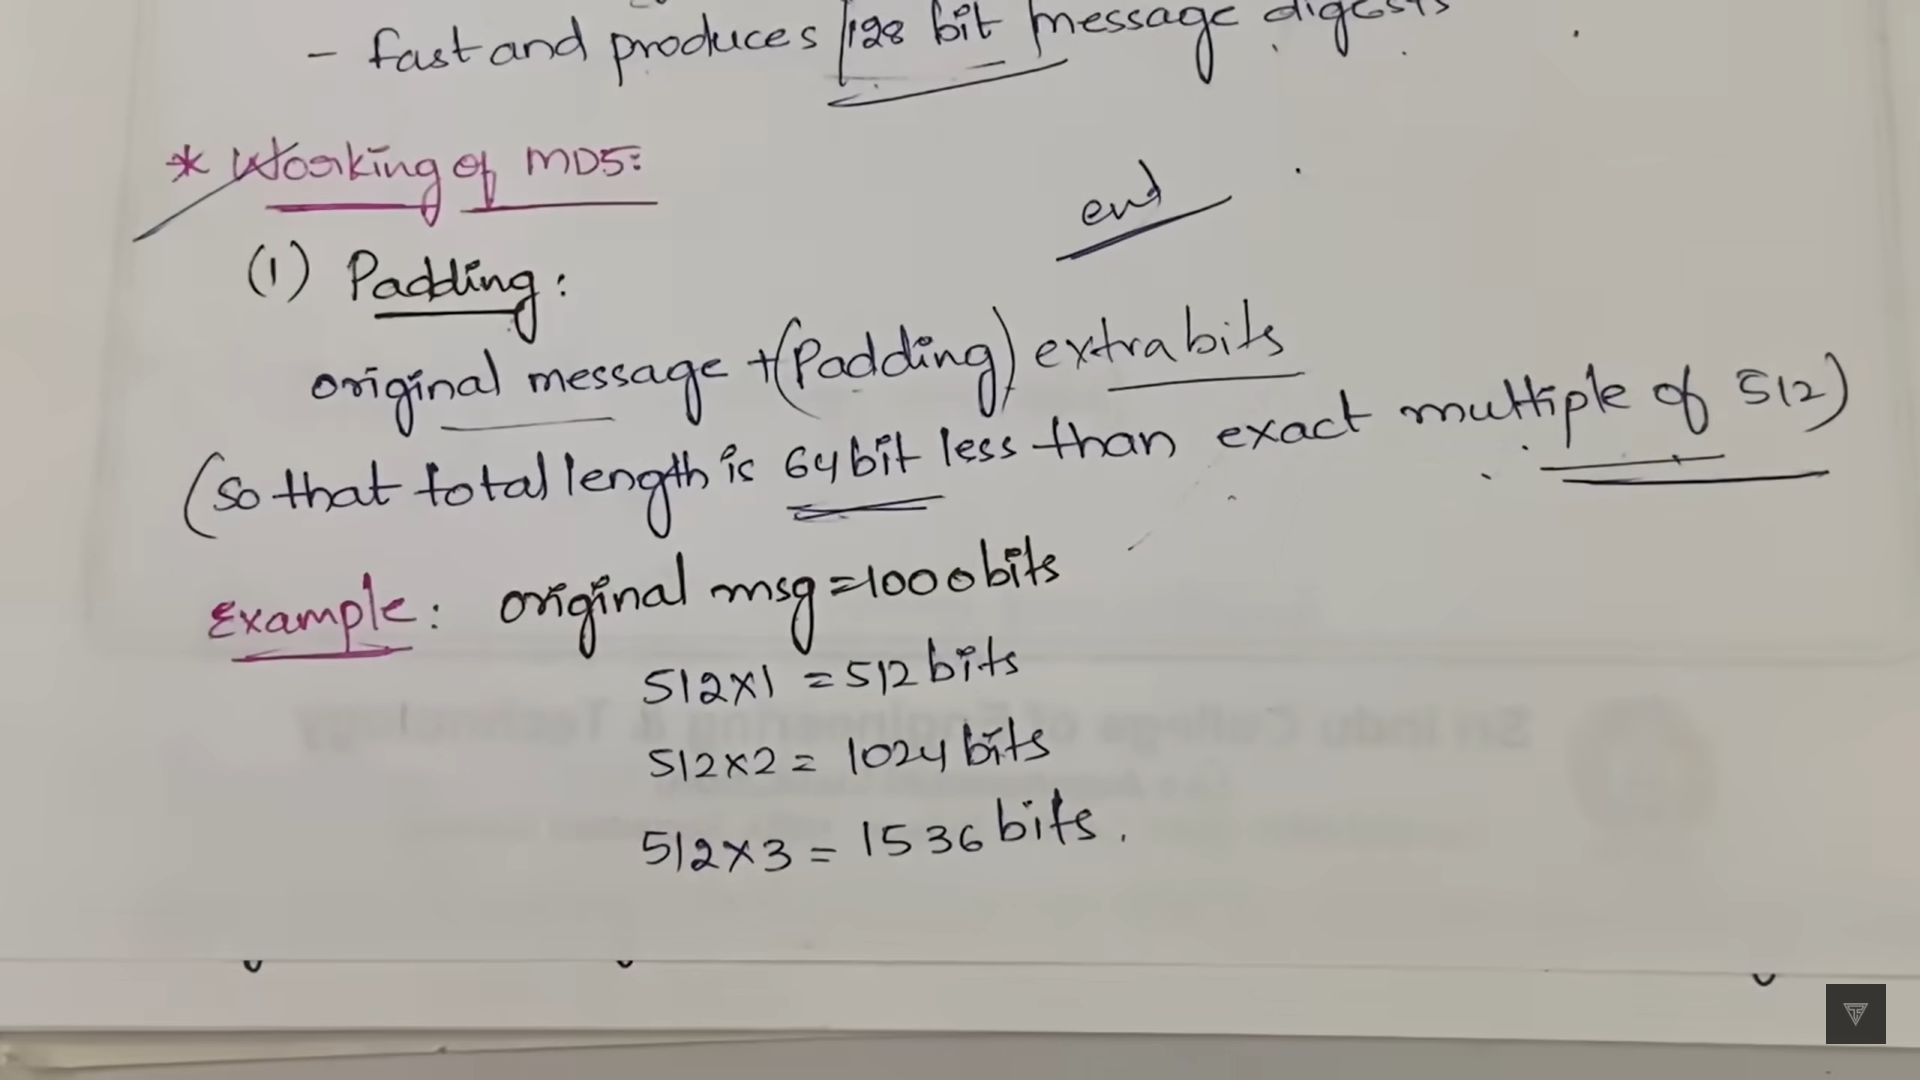 - fast and produces 128 bit message digests
* Working of MD5:
end
(1) Padding:
original message + (Padding) extra bits
(so that total length is 64 bit less than exact multiple of 512)
Example: original msg = 1000 bits
512x1 = 512 bits
512x2 = 1024 bits
512x3 = 1536 bits.